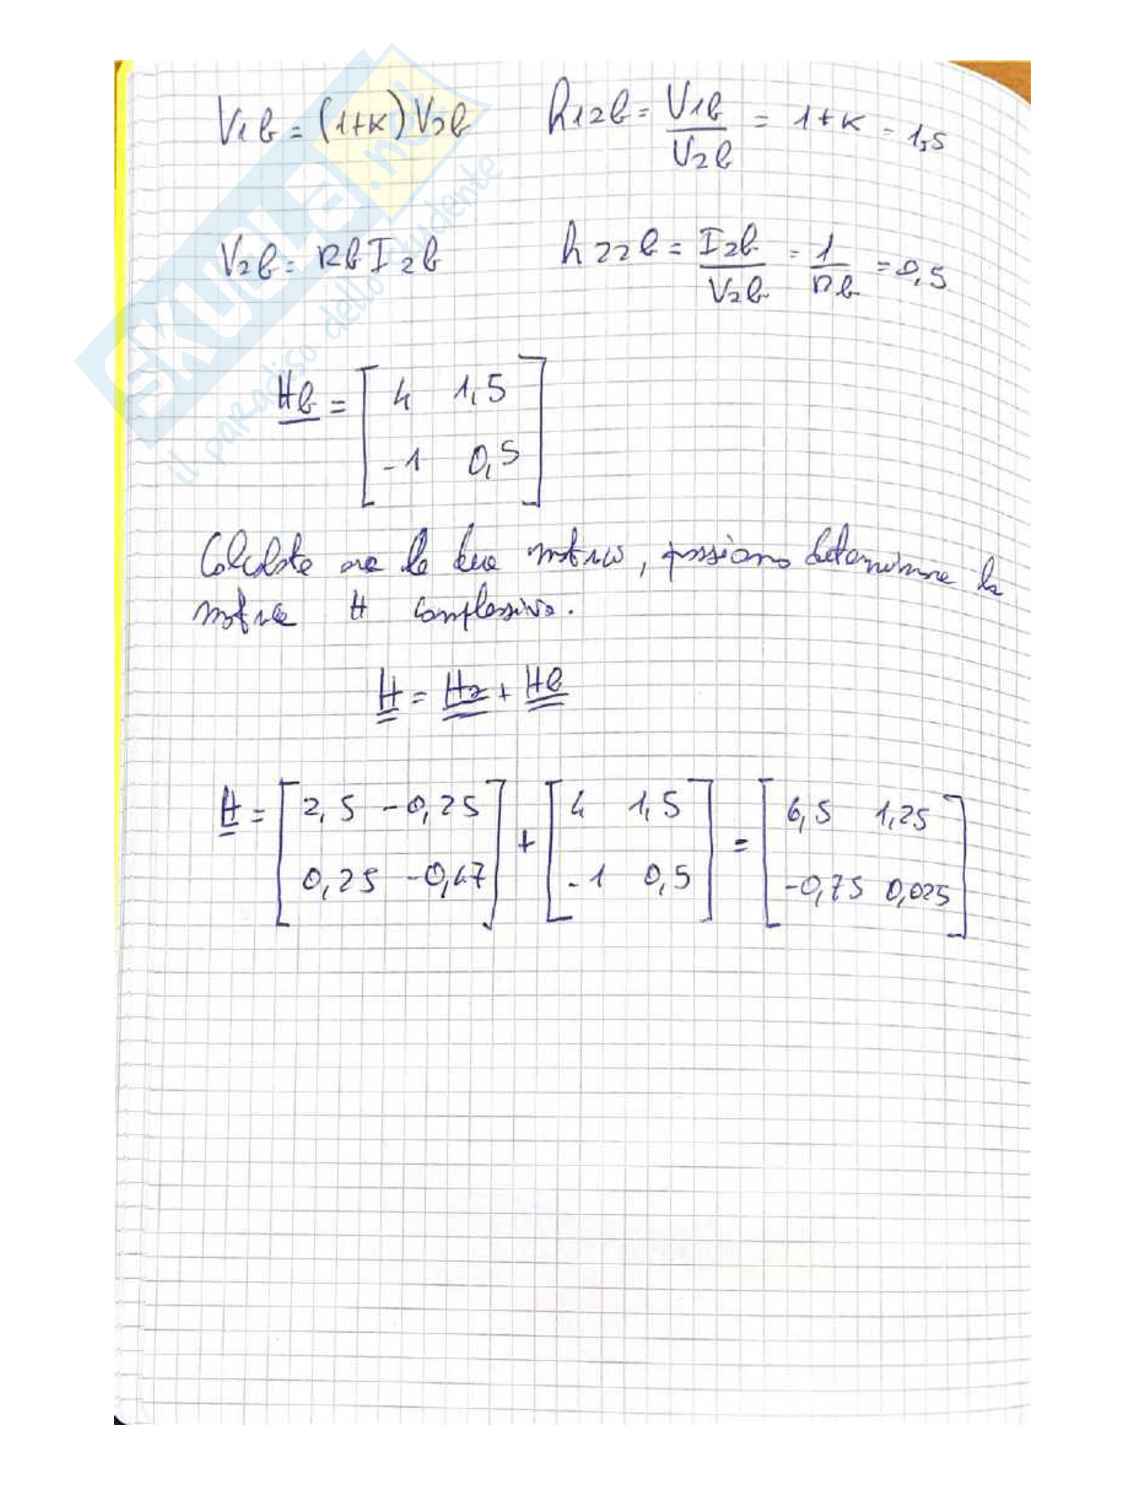 V1b = (1+K) V2b h12b = V1b / V2b = 1+K = 1,5
V2b = Rb I2b h22b = I2b / V2b = 1 / Rb = 0,5
Hb = [ 4 1,5
-1 0,5 ]
Calcolate ora le due matrici, possiamo determinare la
matrice H complessiva.
H = Ha + Hb
H = [ 2,5 -0,25 ] + [ 4 1,5 ] = [ 6,5 1,25 ]
[ 0,25 -0,47 ] [ -1 0,5 ] [ -0,75 0,025 ]
SKUOLA.net
il paradiso dello studente